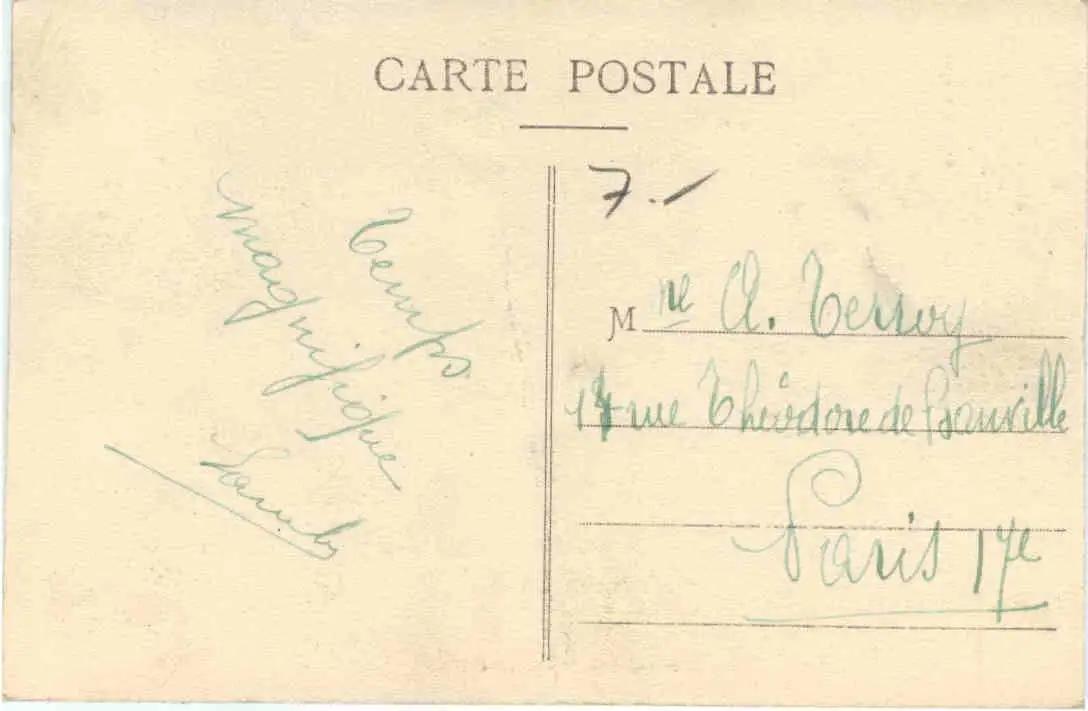 CARTE POSTALE
Temps
magnifique
7.-
Mme A. Terroy
rue Théodore de Banville
Paris 17e